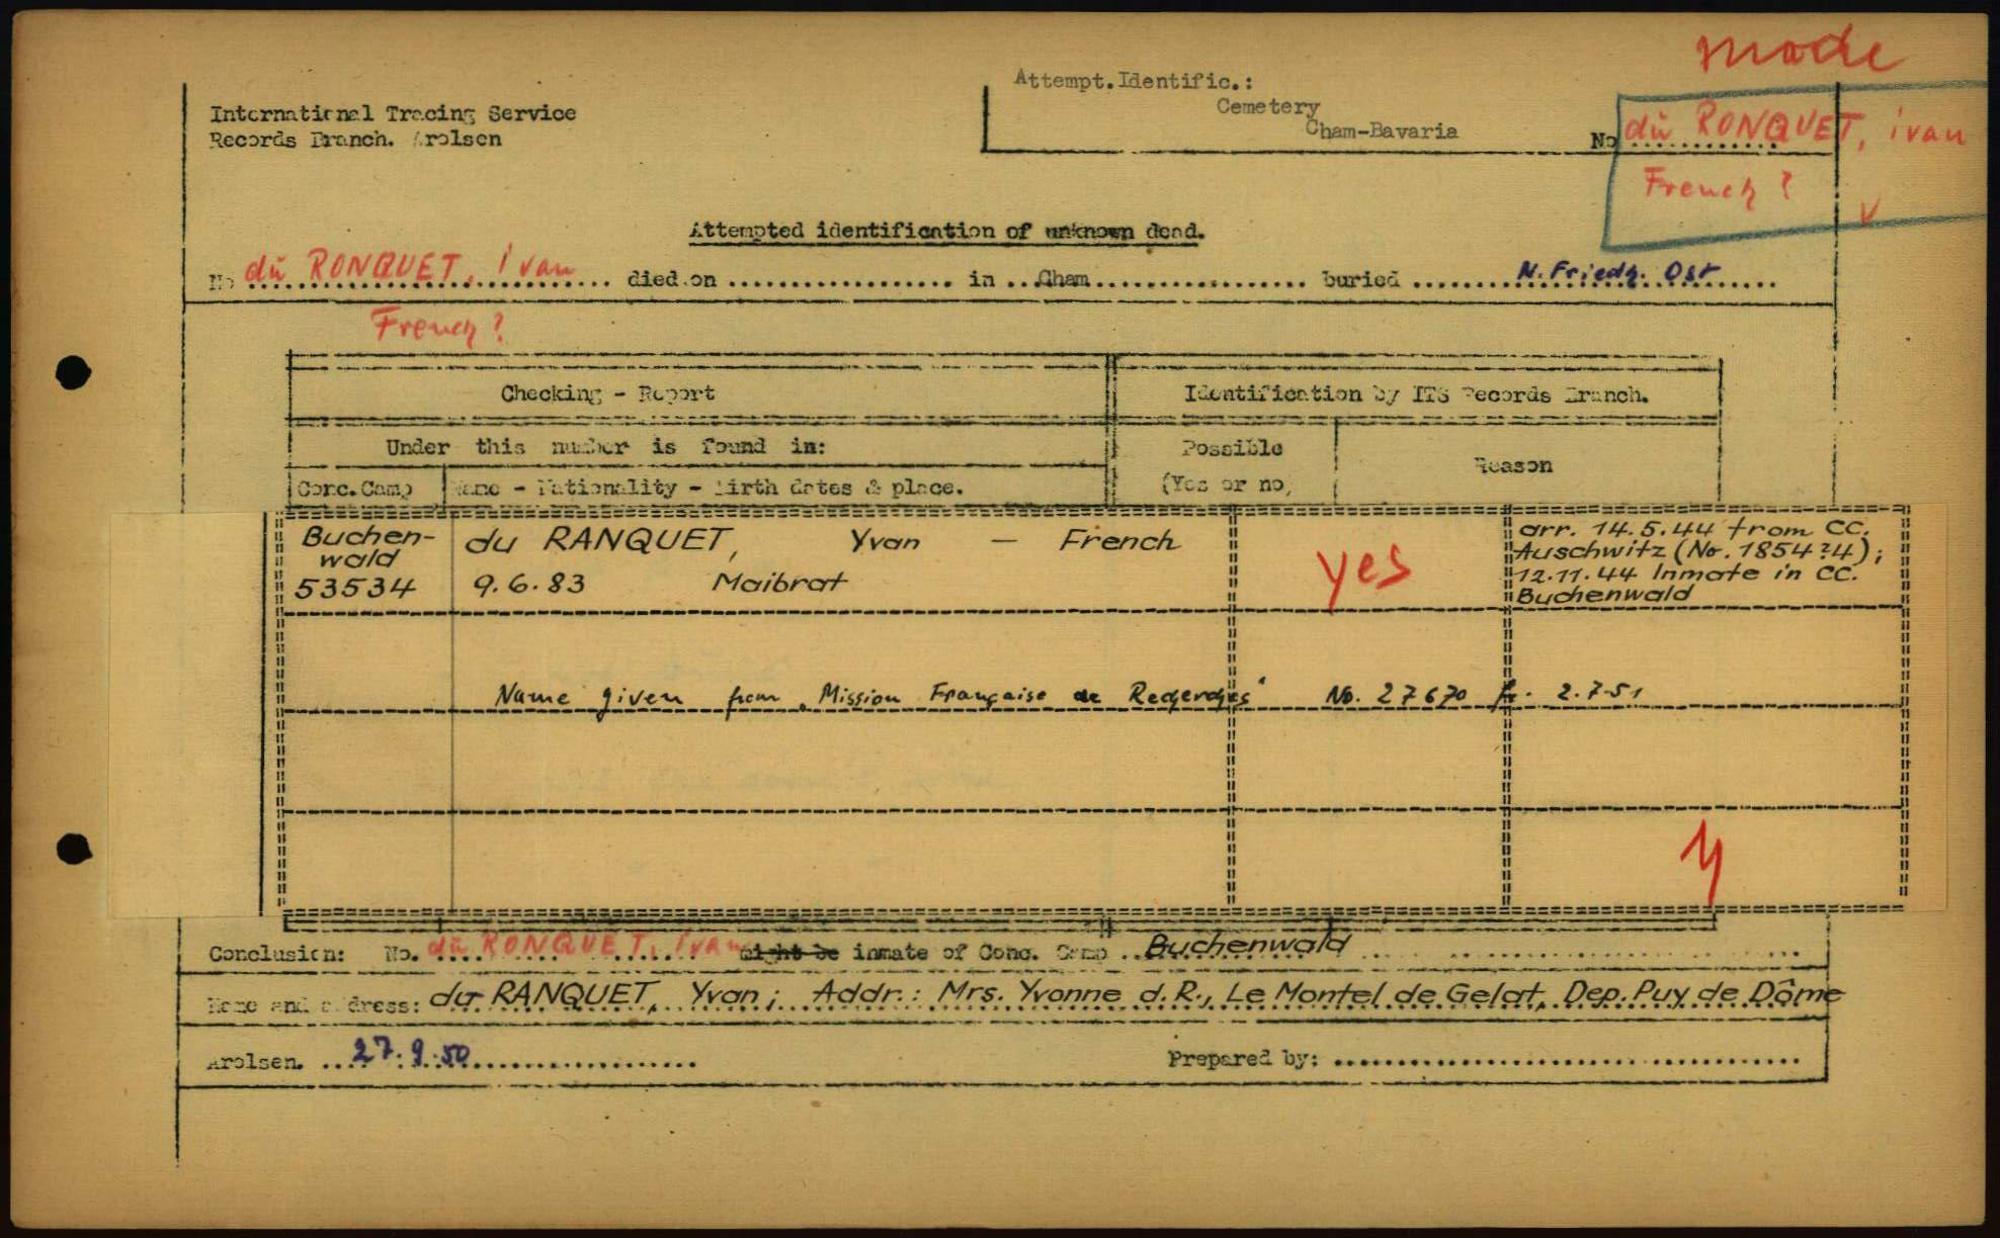 made
International Tracing Service
Records Branch. Arolsen
Attempt.Identific.:
Cemetery
Cham-Bavaria
No du RONQUET, ivan
French ?
Attempted identification of unknown dead.
No du RONQUET, ivan died on .......... in ...Cham.......... buried ..... N. Friedh. Ost
French ?
Checking - Report
Identification by ITS Records Branch.
Under this number is found in:
Possible
(Yes or no)
Reason
Conc.Camp
Name - Nationality - Birth dates & place.
Buchen-
wald
53534
du RANQUET, Yvan — French
9.6.83 Maibrat
yes
arr. 14.5.44 from CC.
Auschwitz (No. 1854?4);
12.11.44 Inmate in CC.
Buchenwald
Name given from "Mission Française de Recherches" No. 27670 fr. 2.7.51
Conclusion: No. du RONQUET, ivan might be inmate of Conc. Camp .. Buchenwald
Name and address: du RANQUET, Yvan; Addr.: Mrs. Yvonne d. R., Le Montel de Gelat, Dep. Puy de Dôme
Arolsen. ... 27.9.50
Prepared by: ..........